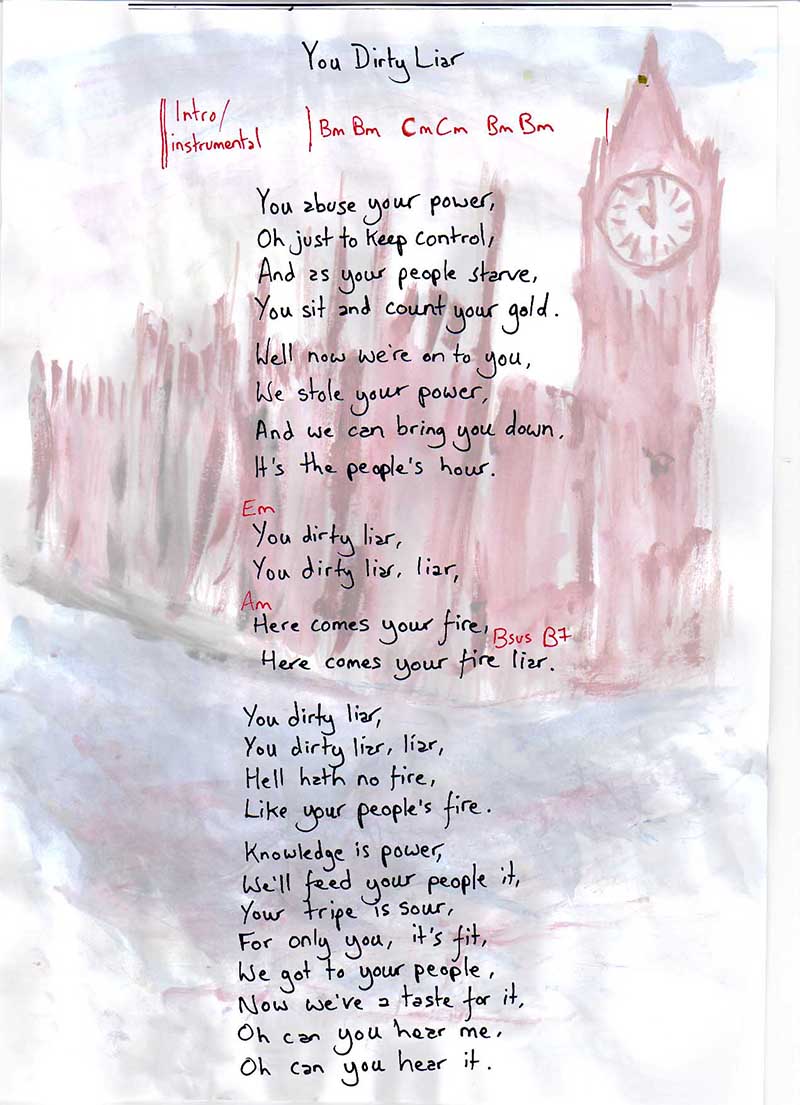 You Dirty Liar
Intro/
instrumental
Bm Bm Cm Cm Bm Bm
You abuse your power,
Oh just to keep control,
And as your people starve,
You sit and count your gold.
Well now we're on to you,
We stole your power,
And we can bring you down.
It's the people's hour.
Em
You dirty liar,
You dirty liar, liar,
Am
Here comes your fire,
Bsus B7
Here comes your fire liar.
You dirty liar,
You dirty liar, liar,
Hell hath no fire,
Like your people's fire.
Knowledge is power,
We'll feed your people it,
Your tripe is sour,
For only you, it's fit,
We got to your people,
Now we've a taste for it,
Oh can you hear me,
Oh can you hear it.